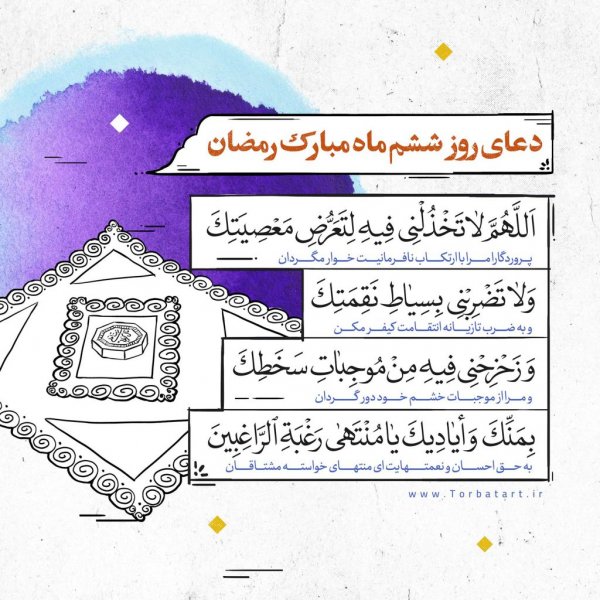 دعای روز ششم ماه مبارک رمضان
اَللَّهُمَّ لَا تَخْذُلْنِي فِيهِ لِتَعَرُّضِ مَعْصِيَتِكَ
پروردگارا مرا با ارتکاب نافرمانیت خوار مگردان
وَلَا تَضْرِبْنِي بِسِيَاطِ نَقِمَتِكَ
و به ضرب تازیانه انتقامت کیفر مکن
وَ زَحْزِحْنِي فِيهِ مِنْ مُوجِبَاتِ سَخَطِكَ
و مرا از موجبات خشم خود دور گردان
بِمَنِّكَ وَ أَيَادِيكَ يَا مُنْتَهَىٰ رَغْبَةِ ٱلرَّاغِبِينَ
به حق احسان و نعمتهایت ای منتهای خواسته مشتاقان
www.Torbatart.ir